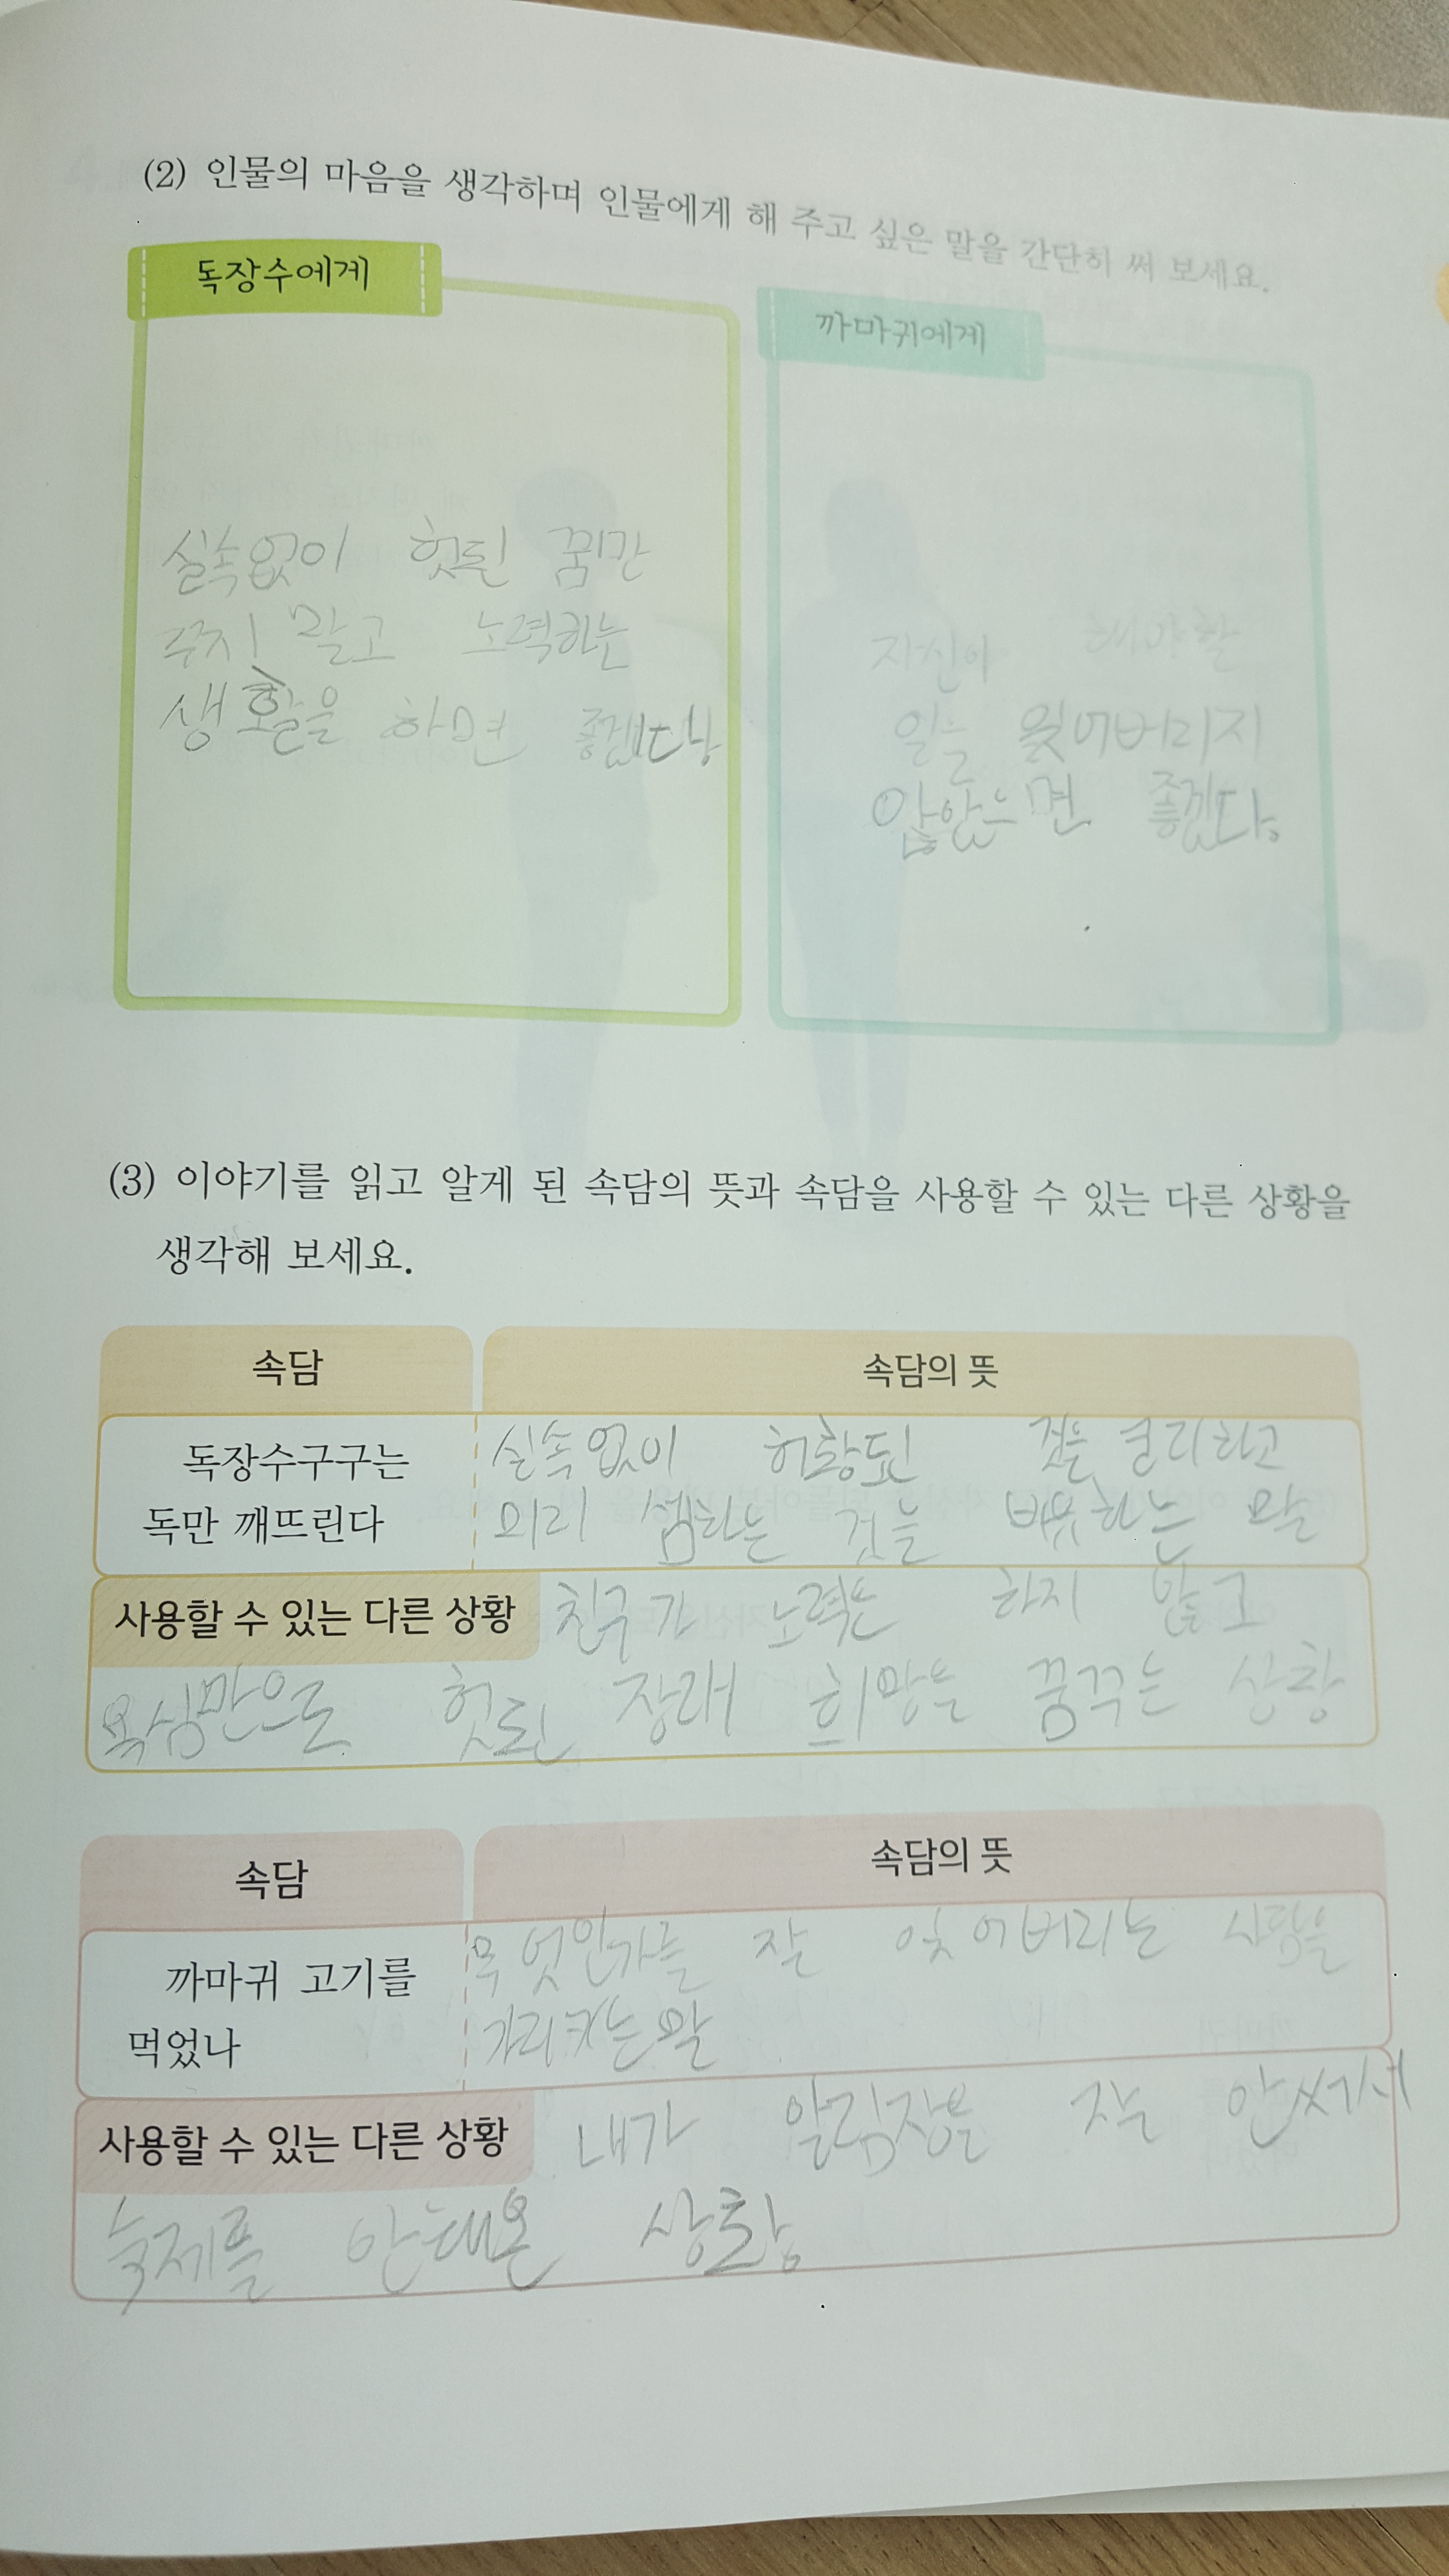 (2) 인물의 마음을 생각하며 인물에게 해 주고 싶은 말을 간단히 써 보세요.
독장수에게
실속없이 헛된 꿈만
꾸지 말고 노력하는
생활을 하면 좋겠다
까마귀에게
자신이 해야할
일을 잊어버리지
않았으면 좋겠다.
(3) 이야기를 읽고 알게 된 속담의 뜻과 속담을 사용할 수 있는 다른 상황을
생각해 보세요.
속담 속담의 뜻
독장수구구는
독만 깨뜨린다
실속없이 허황된 것을 궁리하고
미리 셈하는 것을 비유하는 말
사용할 수 있는 다른 상황 친구가 노력은 하지 않고
욕심만으로 헛된 장래 희망을 꿈꾸는 상황
속담 속담의 뜻
까마귀 고기를
먹었나
무엇인가를 잘 잊어버리는 사람을
가리키는 말
사용할 수 있는 다른 상황 내가 알림장을 잘 안써서
숙제를 안해온 상황